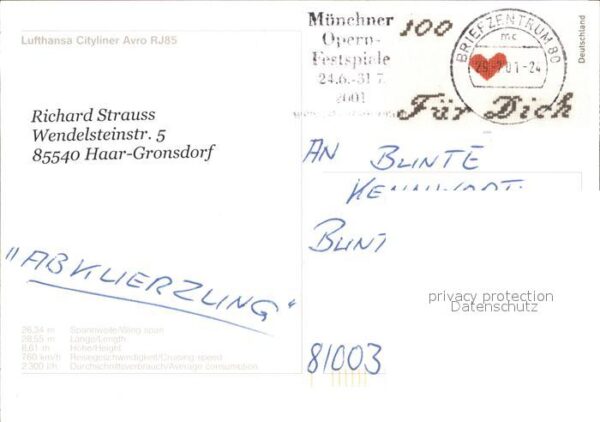 Lufthansa Cityliner Avro RJ85
Münchner
Opern-
Festspiele
24.6.-31.7.
2001
100
Für Dich
Deutschland
BRIEFZENTRUM 80
mc
-24
Richard Strauss
Wendelsteinstr. 5
85540 Haar-Gronsdorf
AN BUNTE
KENNWORT:
BUNT
"ABKUERZUNG"
privacy protection
Datenschutz
26,34 m Spannweite/Wing span
28,55 m Länge/Length
8,61 m Höhe/Height
760 km/h Reisegeschwindigkeit/Cruising speed
2 300 l/h Durchschnittsverbrauch/Average consumption
81003